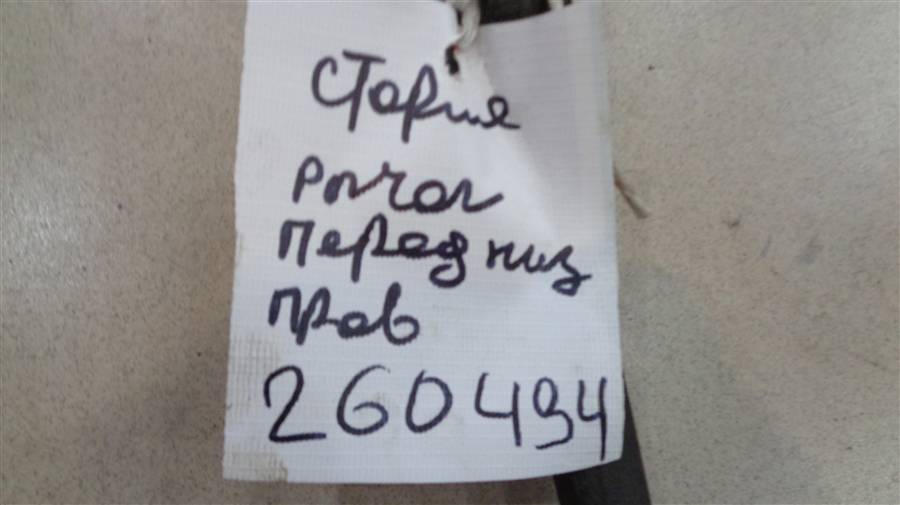 Стариа
рычаг
перед низ
прав
260494